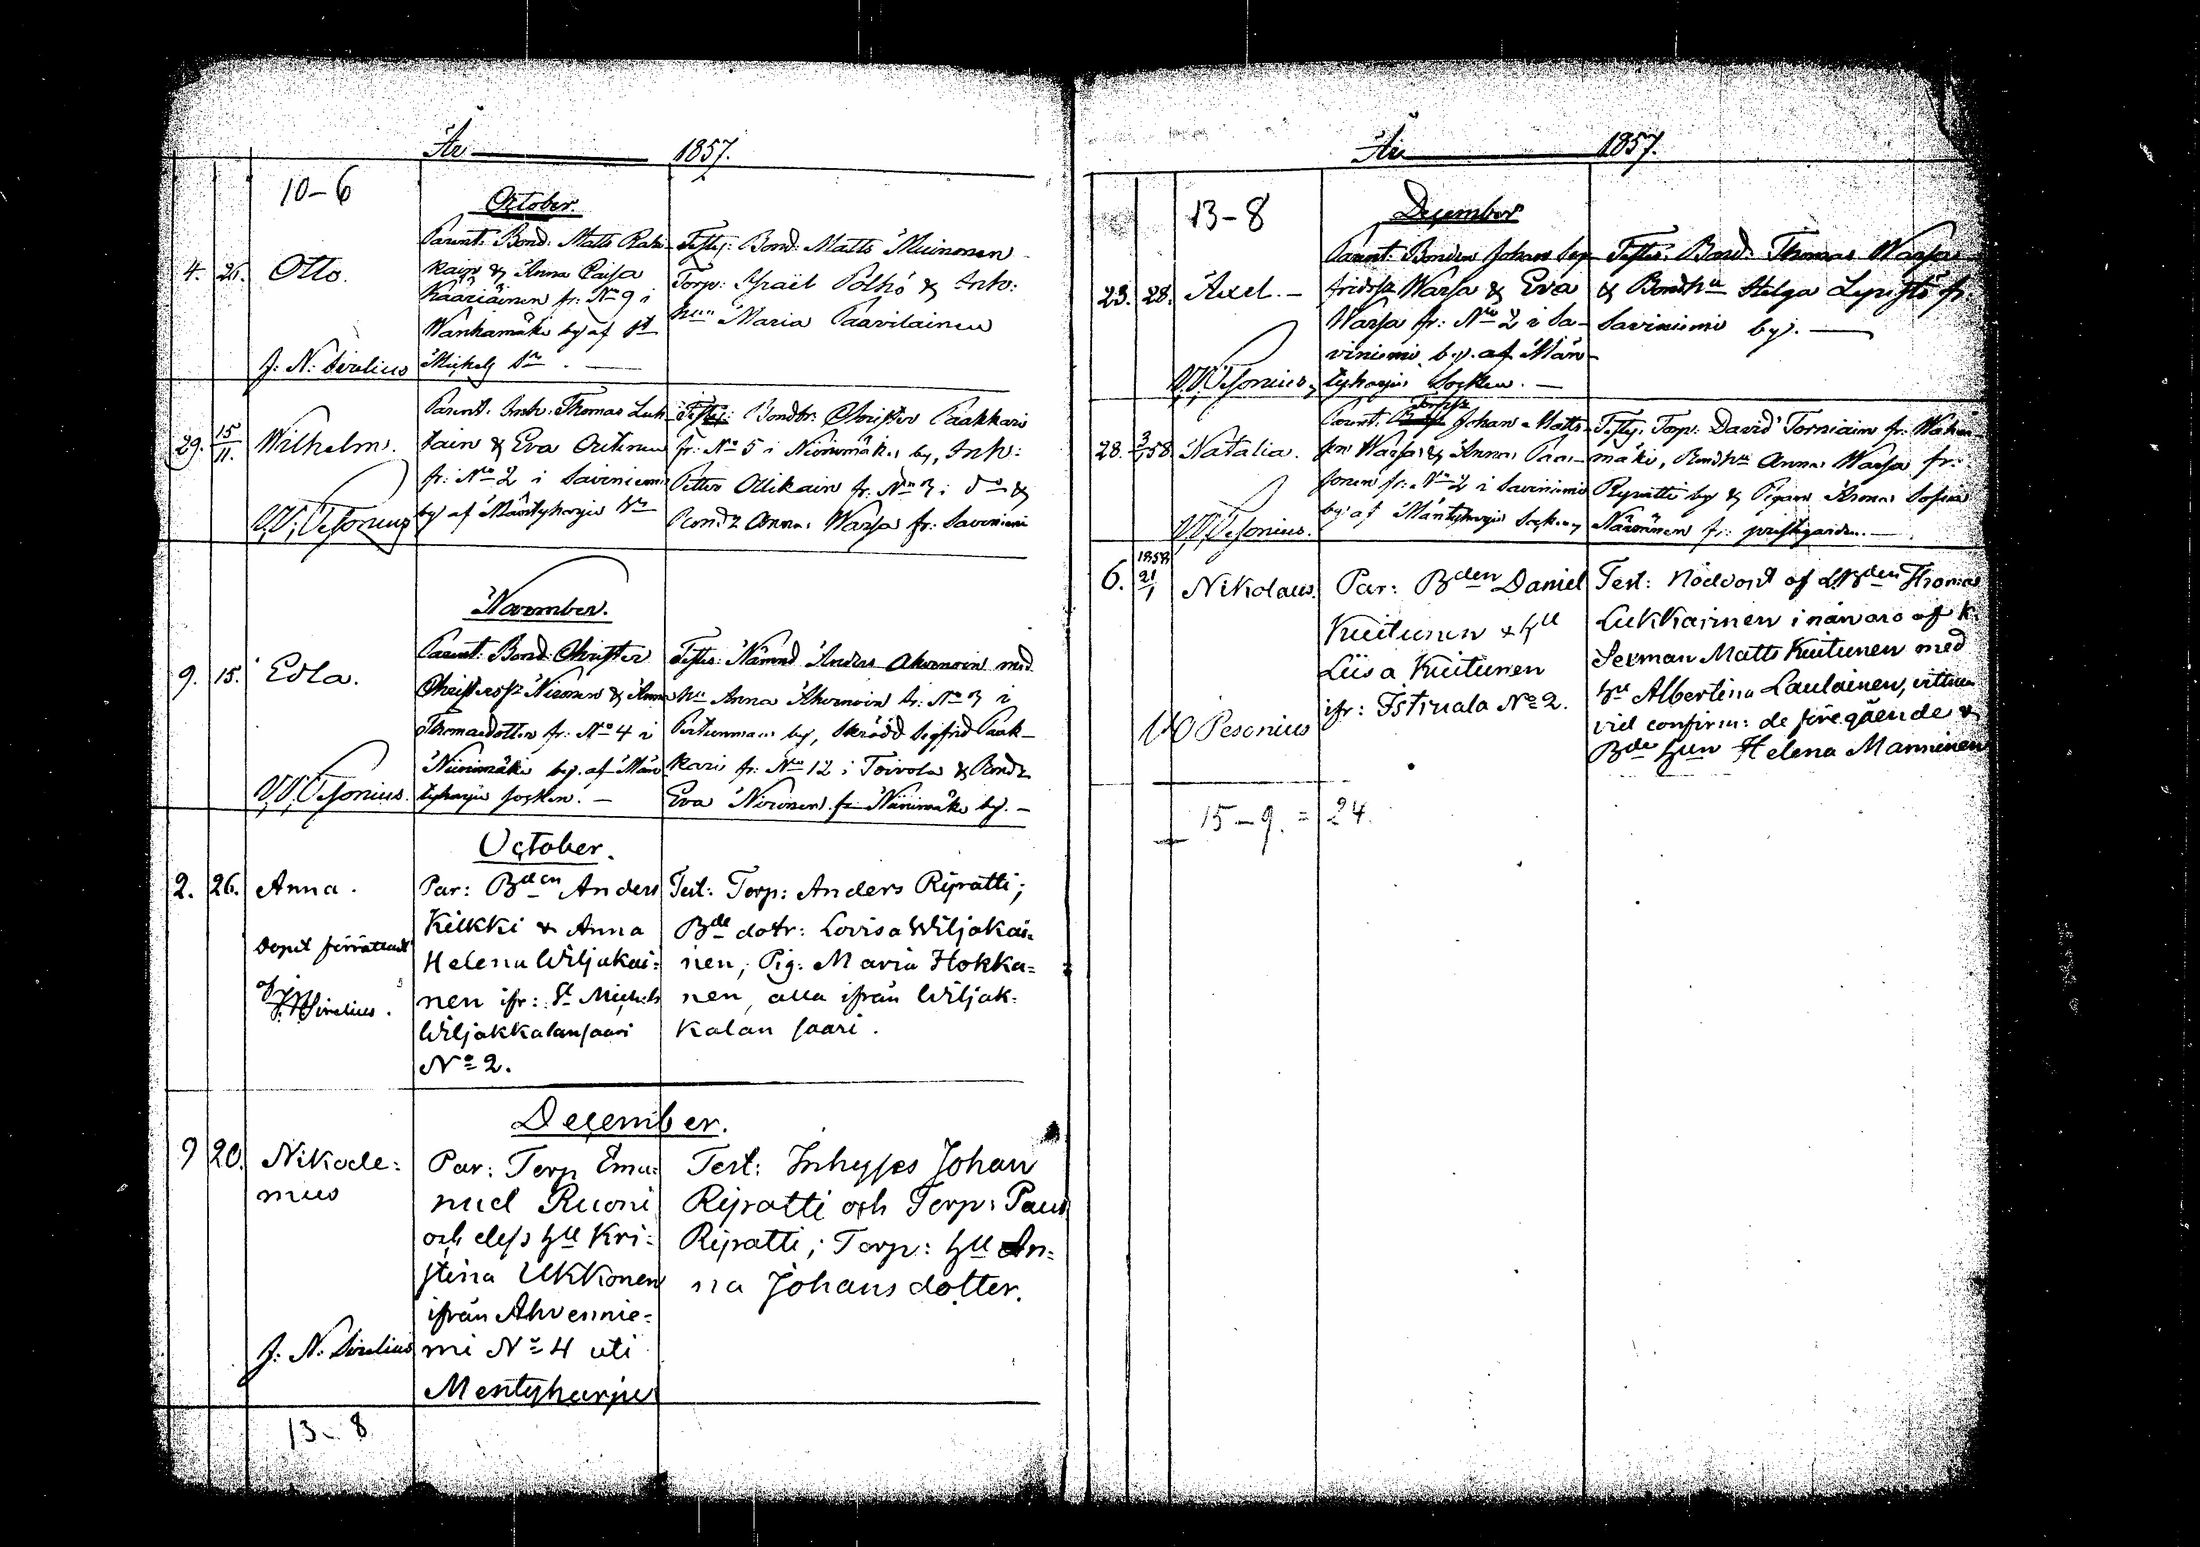 År 1857.
10-6
October.
4. 26. Otto.
Parent: Bond: Matts
kain & Anna Caisa
Kääriäinen fr: No 9 i
Wankamäki by af St
Michels Sn. —
J. N. Sirelius
Testes: Bond: Matts Muinonen
Torp: Israël Pölhö & Inh:
hun Maria Paavilainen
29. 15/11. Wilhelm.
Parent. Inh: Thomas Luk
kain & Eva Outinen
fr: No 2 i Saviniemi
by af Mäntyharju Sn
W. Pesonius
Testes: Bondtr: Christer Paakkari
fr: No 5 i Niinimäki by, Inh:
Petter Ollikain fr: No 3 i do &
Bond Anna Warsa fr: Saviniemi
November.
9. 15. Edla.
Parent: Bond: Christer
Christerss: Nironen & Anna
Thomasdotter fr: No 4 i
Niinimäki by. af Män
tyharju socken. —
W. Pesonius.
Testes: Nämnd Anders Ahvenain med
hu Anna Ahvenain fr: No 3 i
Pertunmaa by, Skrädd Sigfrid Paak-
kari fr: No 12 i Toivola & Bond
Eva Nironen fr Niinimäki by. —
October.
2. 26. Anna.
Dopet förrättadt
af J. N. Sirelius.
Par: Bden Anders
Kilkki & Anna
Helena Wiljakai=
nen ifr: St Michels
Wiljakkalansaari
No 2.
Test: Torp: Anders Ripatti;
Bde dotr: Lovisa Wiljakai=
nen, Pig: Maria Hokka=
nen, alla ifrån Wiljak=
kalan saari.
December.
9 20. Nikode=
mus
J. N. Sirelius
Par: Torp Ema=
nuel Ruoni
och dess hu Kri=
stina Ukkonen
ifrån Ahvennie=
mi No 4 uti
Mentyharju
Test: Inhyses Johan
Ripatti och Torp: Paul
Ripatti; Torp: hu An=
na Johansdotter.
13-8
År 1857.
13-8
December
23. 28. Axel. —
Parent: Bonden Johan Sig-
fridss: Warsa & Eva
Warsa fr: No 2 i Sa-
viniemi by. af Män-
tyharju Socken. —
W. Pesonius,
Testes: Bond: Thomas Warsa
& Bondhu Helga Lyijstö fr.
Saviniemi by. —
28. 3/1 58 Natalia.
Parent. Torpss Johan Matts-
son Warsa & Anna Paa-
sonen fr: No 2 i Saviniemi
by af Mäntyharju Socken,
W. Pesonius.
Testes: Torp: David Torniain fr.
mäki, Bondhu Anna Warsa fr:
Ryratti by & Pigan Anna Sofia
Närvänen fr: prestgården. —
6. 1858 21/1 Nikolaus.
Par: Bden Daniel
Kuitunen & hu
Liisa Kuitunen
ifr: Istruala No 2.
W Pesonius
Test: Nöddöpt af Bden Thomas
Lukkarinen i närvaro af K.
Sexman Matts Kuitunen med
hu Albertina Laulainen, vittnen
vid confirm: de föregående &
Bde hun Helena Manninen
15-9. = 24.